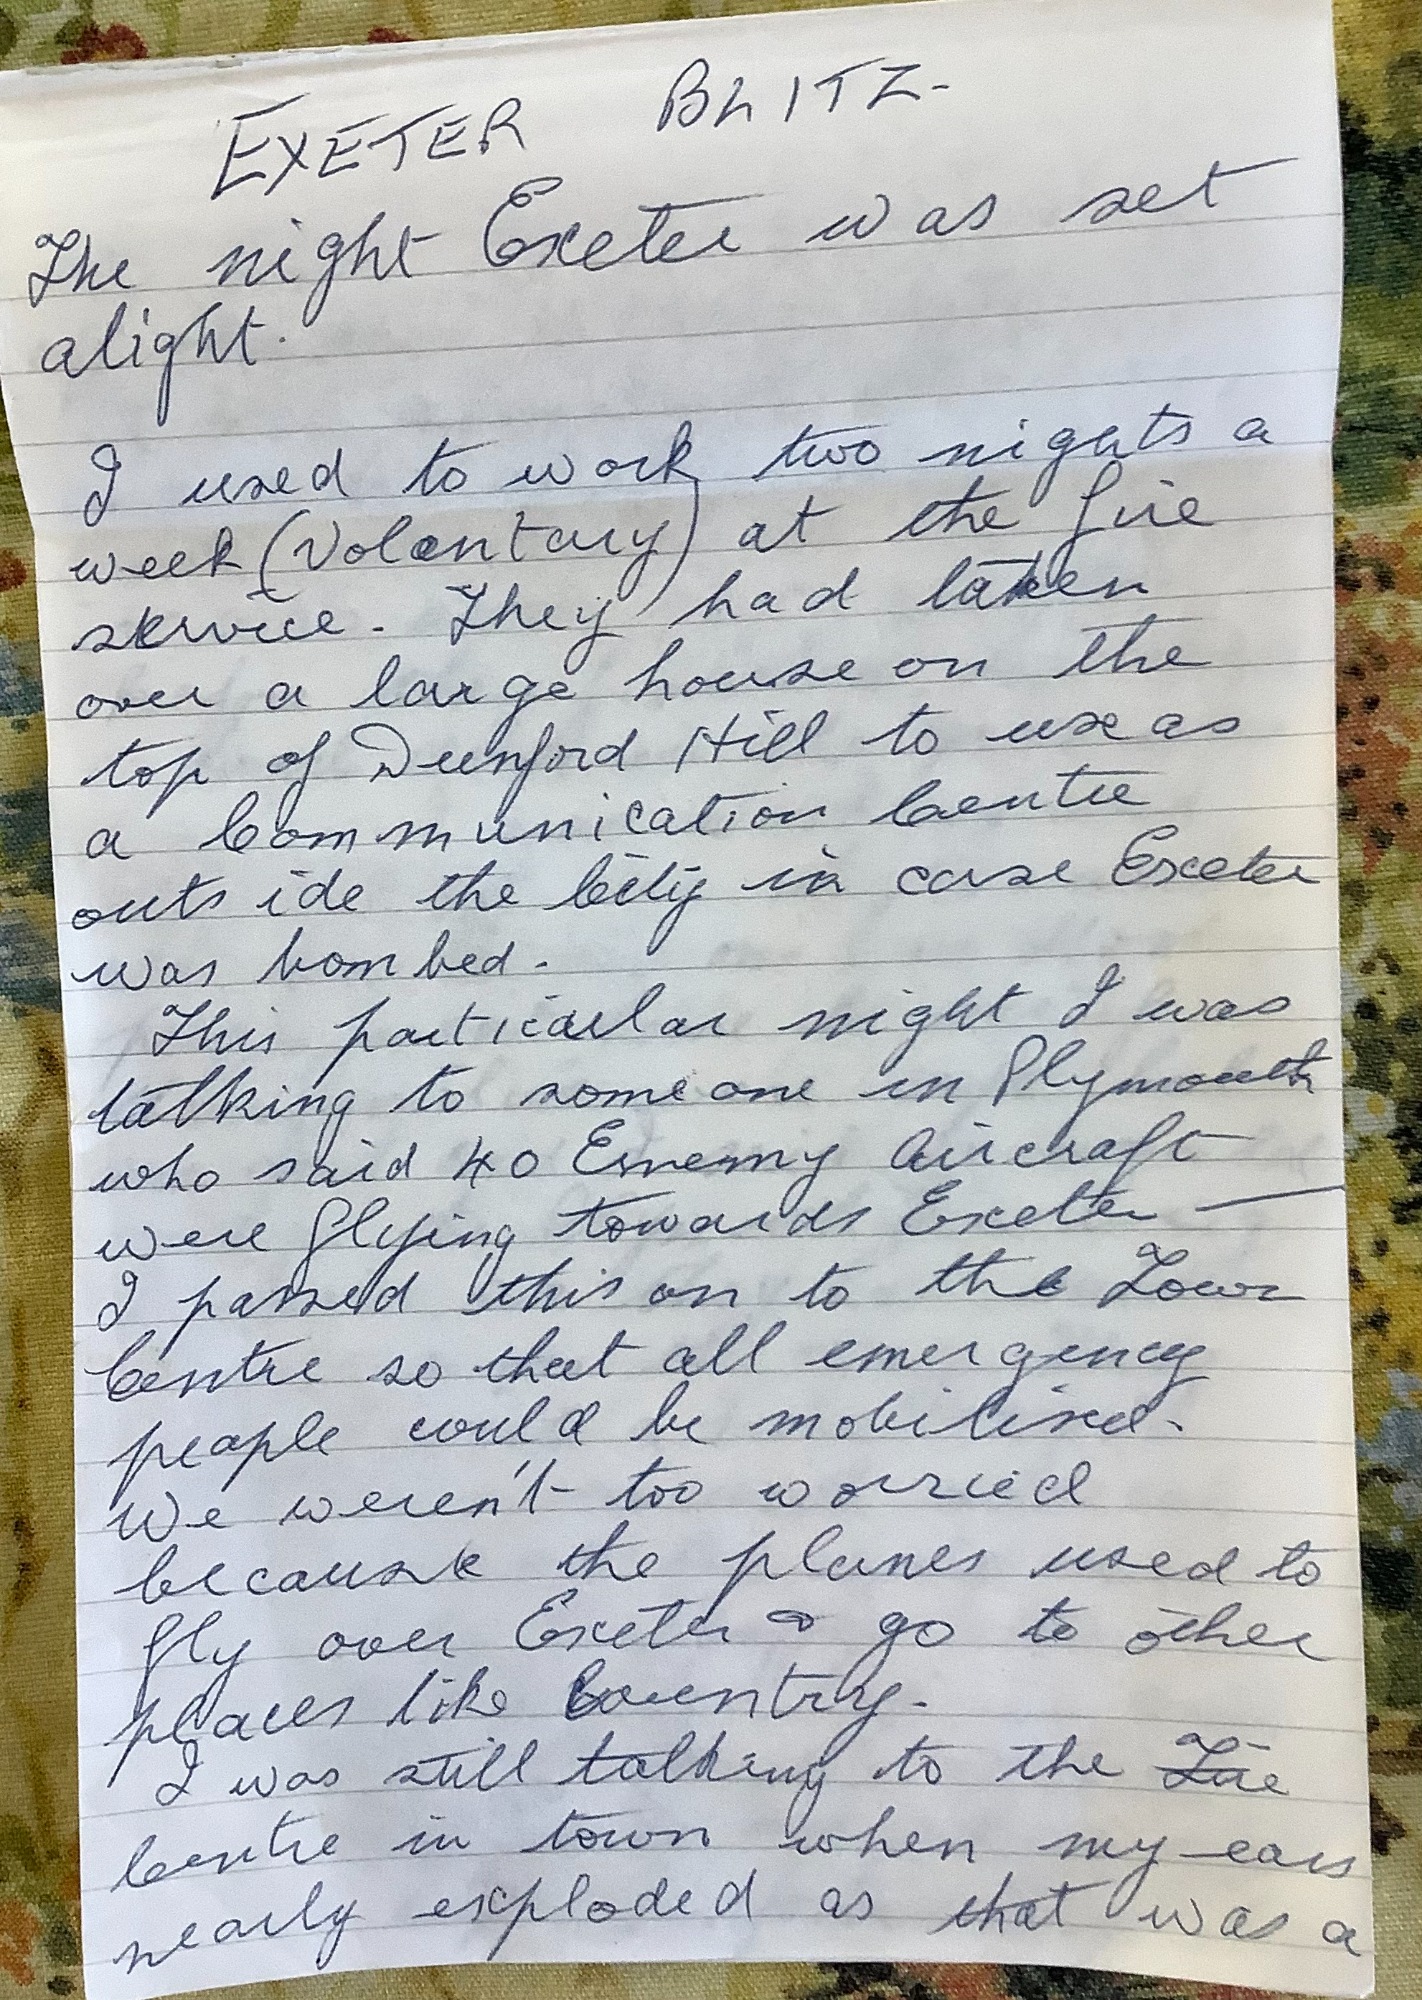 EXETER BLITZ.
The night Exeter was set
alight.
I used to work two nights a
week (Volentary) at the fire
service. They had taken
over a large house on the
top of Dunsford Hill to use as
a Communication Centre
outside the City in case Exeter
was bombed.
This particular night I was
talking to someone in Plymouth
who said 40 Enemy Aircraft
were flying towards Exeter —
I passed this on to the Town
Centre so that all emergency
people could be mobilised.
We weren't too worried
because the planes used to
fly over Exeter & go to other
places like Coventry.
I was still talking to the Fire
Centre in town when my ears
nearly exploded as that was a